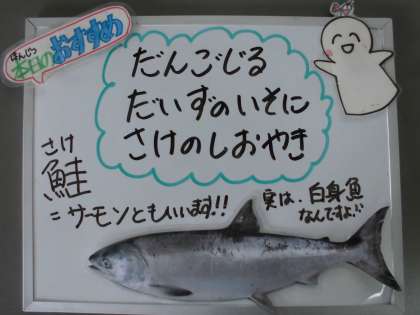 ほんじつ
本日のおすすめ
だんごじる
だいずのいそに
さけのしおやき
さけ
鮭
=サーモンともいいます!!
実は、白身魚
なんですよ!!